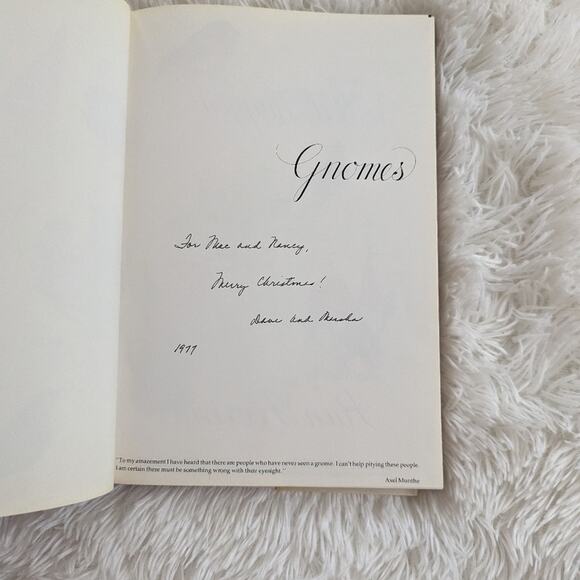 Gnomes
For Mac and Nancy,
Merry Christmas!
Dave and Marsha
1977
"To my amazement I have heard that there are people who have never seen a gnome. I can't help pitying these people.
I am certain there must be something wrong with their eyesight."
Axel Munthe